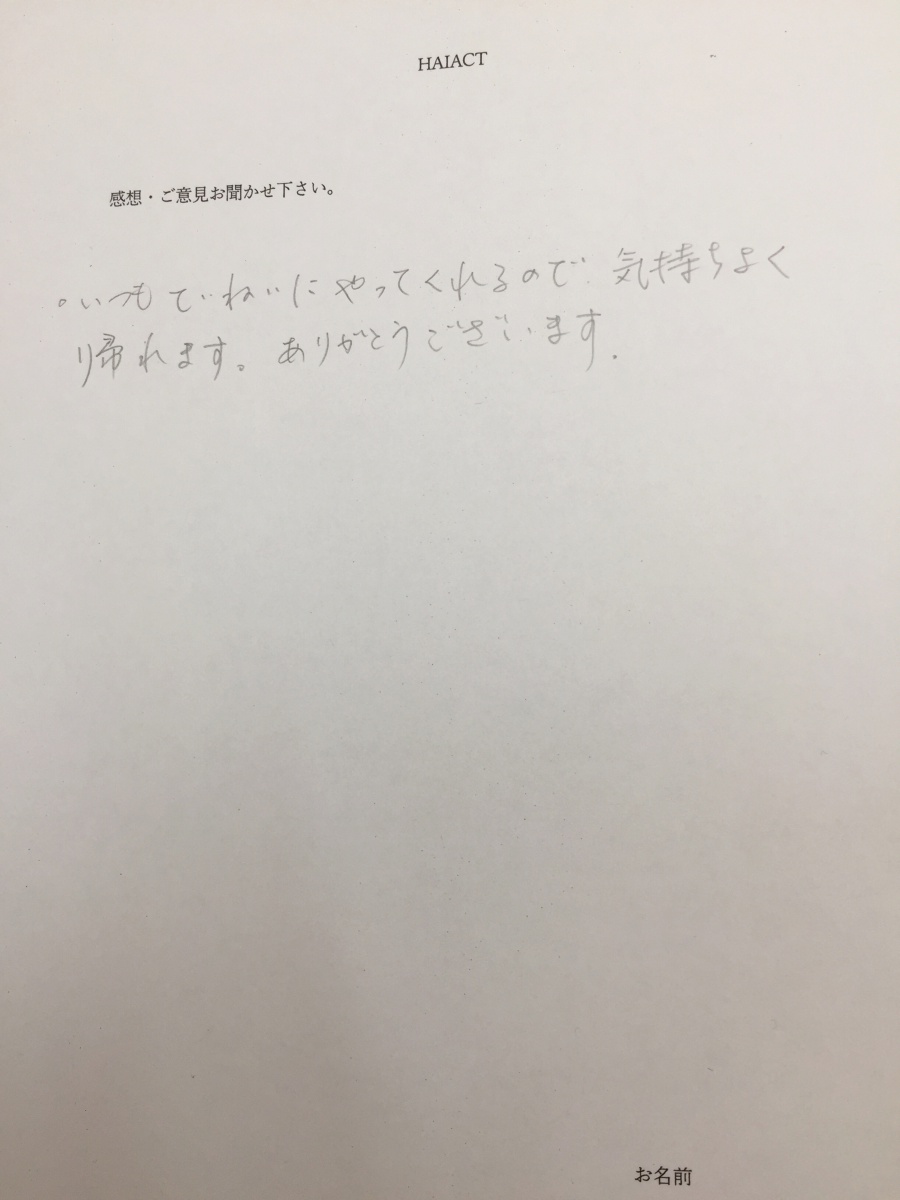 HAIACT
感想・ご意見お聞かせ下さい。
○いつもていねいにやってくれるので、気持ちよく
帰れます。ありがとうございます.
お名前